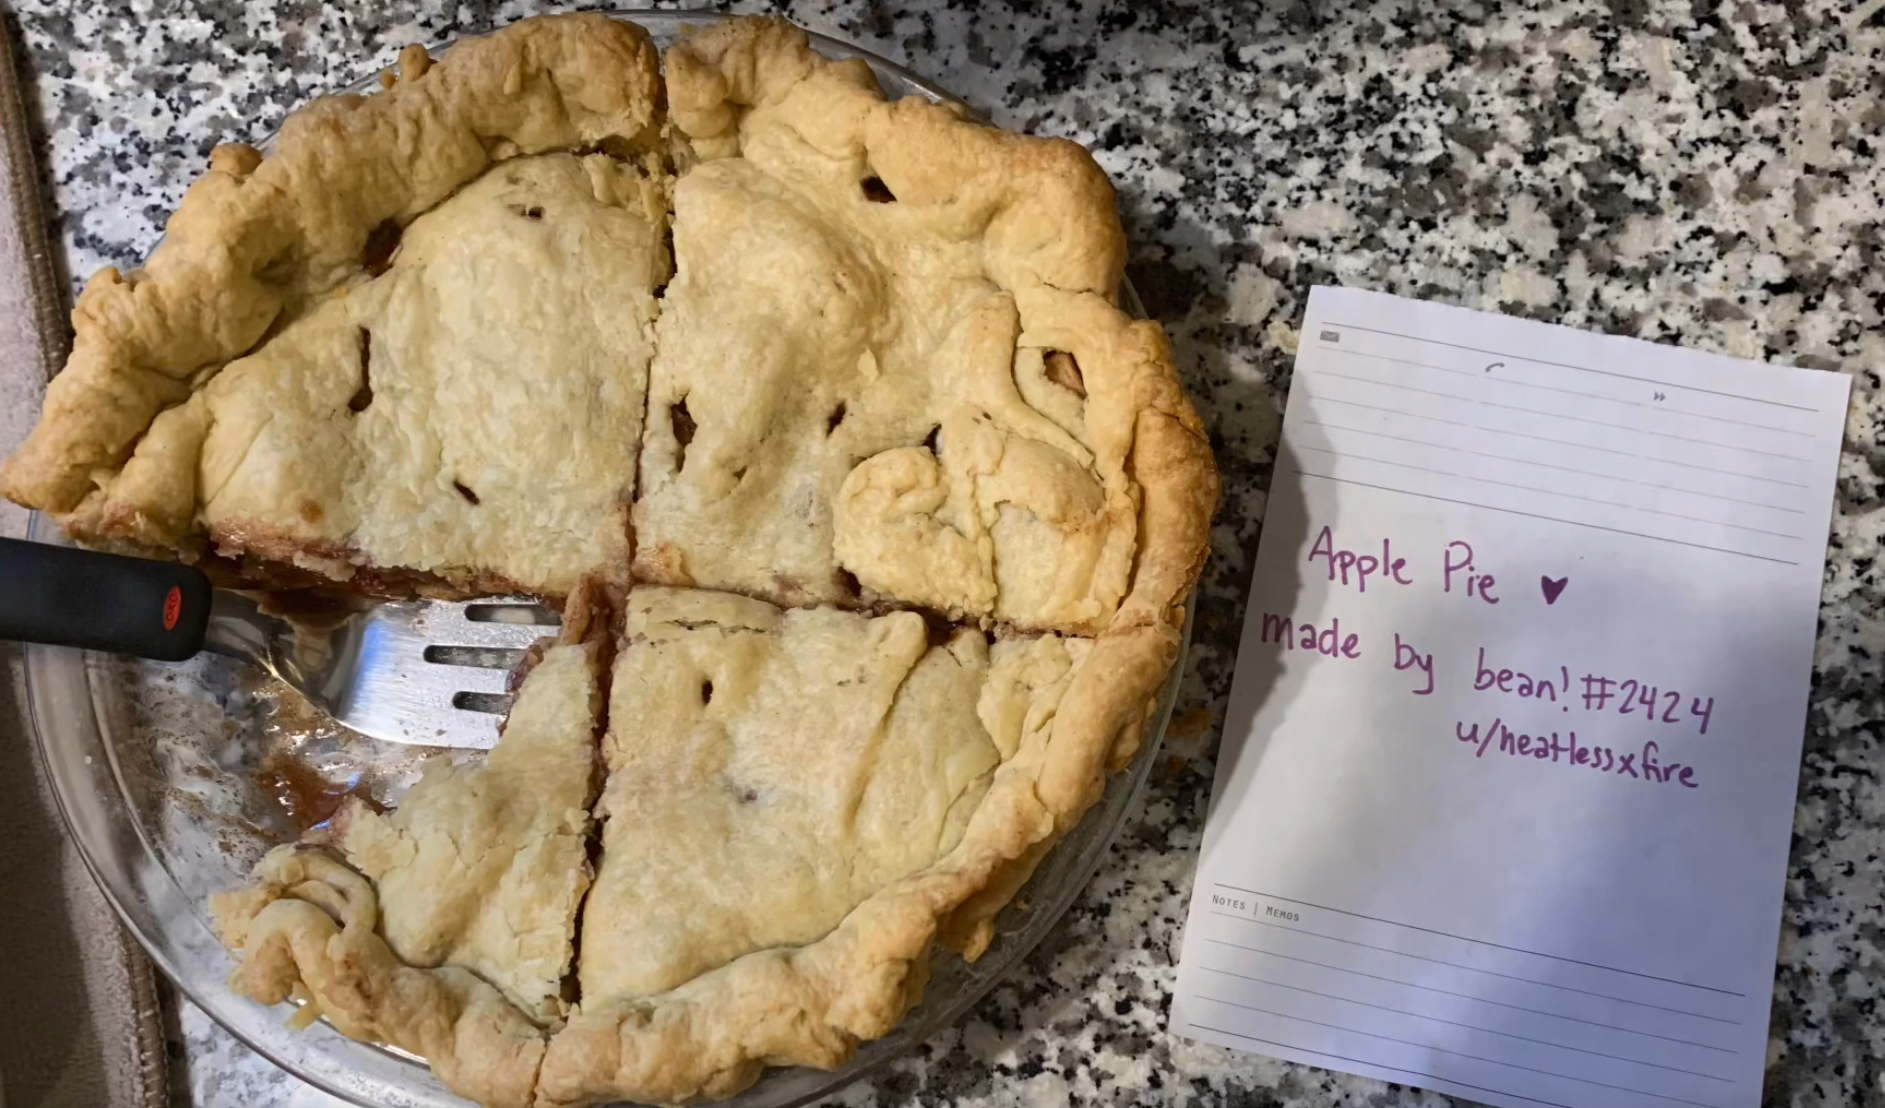 OXO
Apple Pie ♥
made by bean!#2424
u/heatlessxfire
NOTES | MEMOS